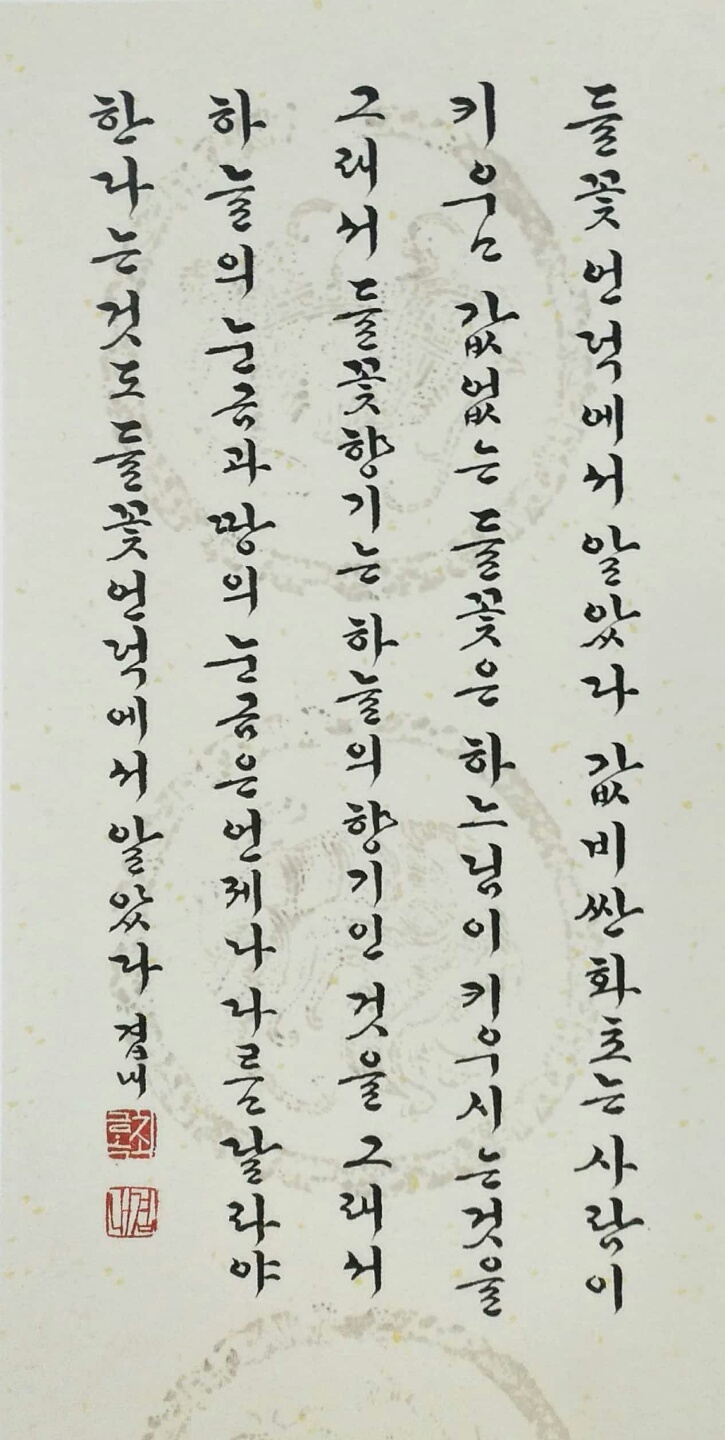 들꽃언덕에서알았다 값비싼화초는사람이
키움 값없는 들꽃은 하느님이키우시는것을
그래서 들꽃향기는 하늘의향기인 것을 그래서
하늘의눈금과 땅의눈금은언제나 달라야
한다는것도 들꽃언덕에서 알았다 겸내